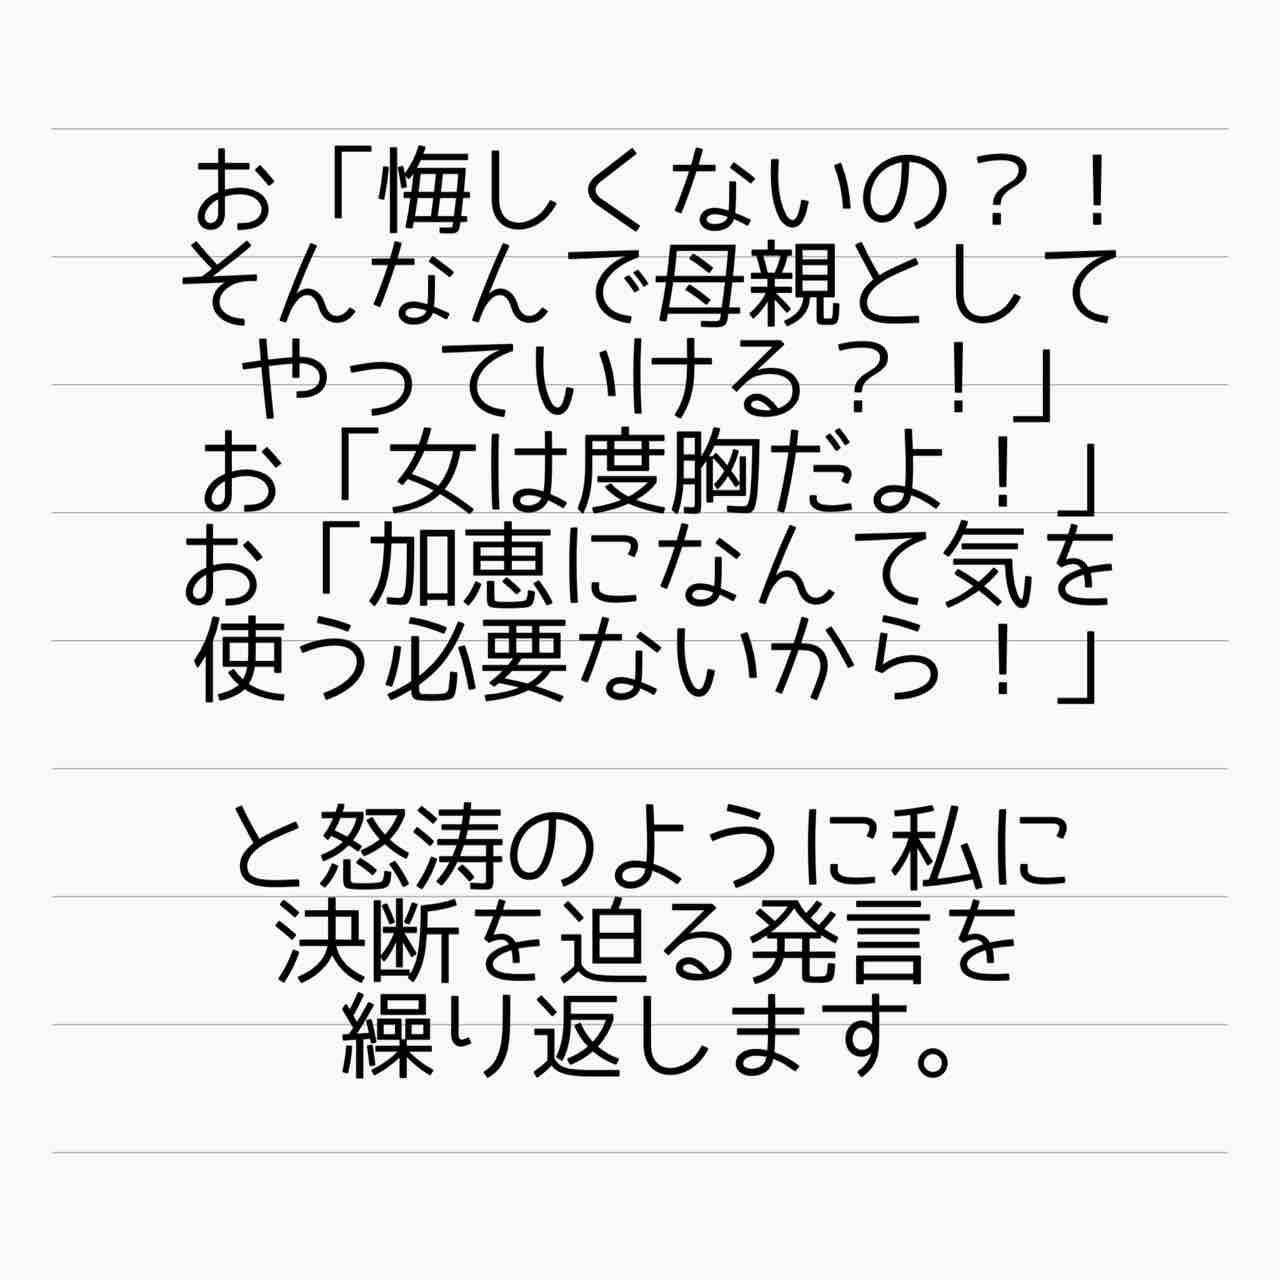 お「悔しくないの？！
そんなんで母親として
やっていける？！」
お「女は度胸だよ！」
お「加恵になんて気を
使う必要ないから！」
と怒涛のように私に
決断を迫る発言を
繰り返します。